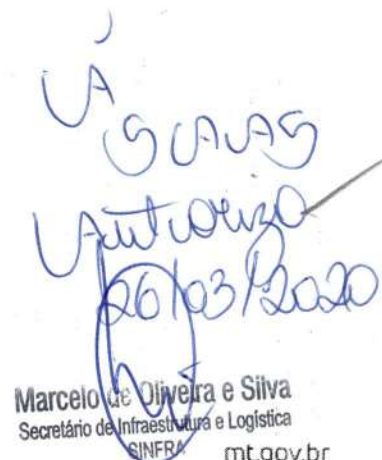 À
Autorizo
26/03/2020
Marcelo de Oliveira e Silva
Secretário de Infraestrutura e Logística
SINFRA
mt.gov.br